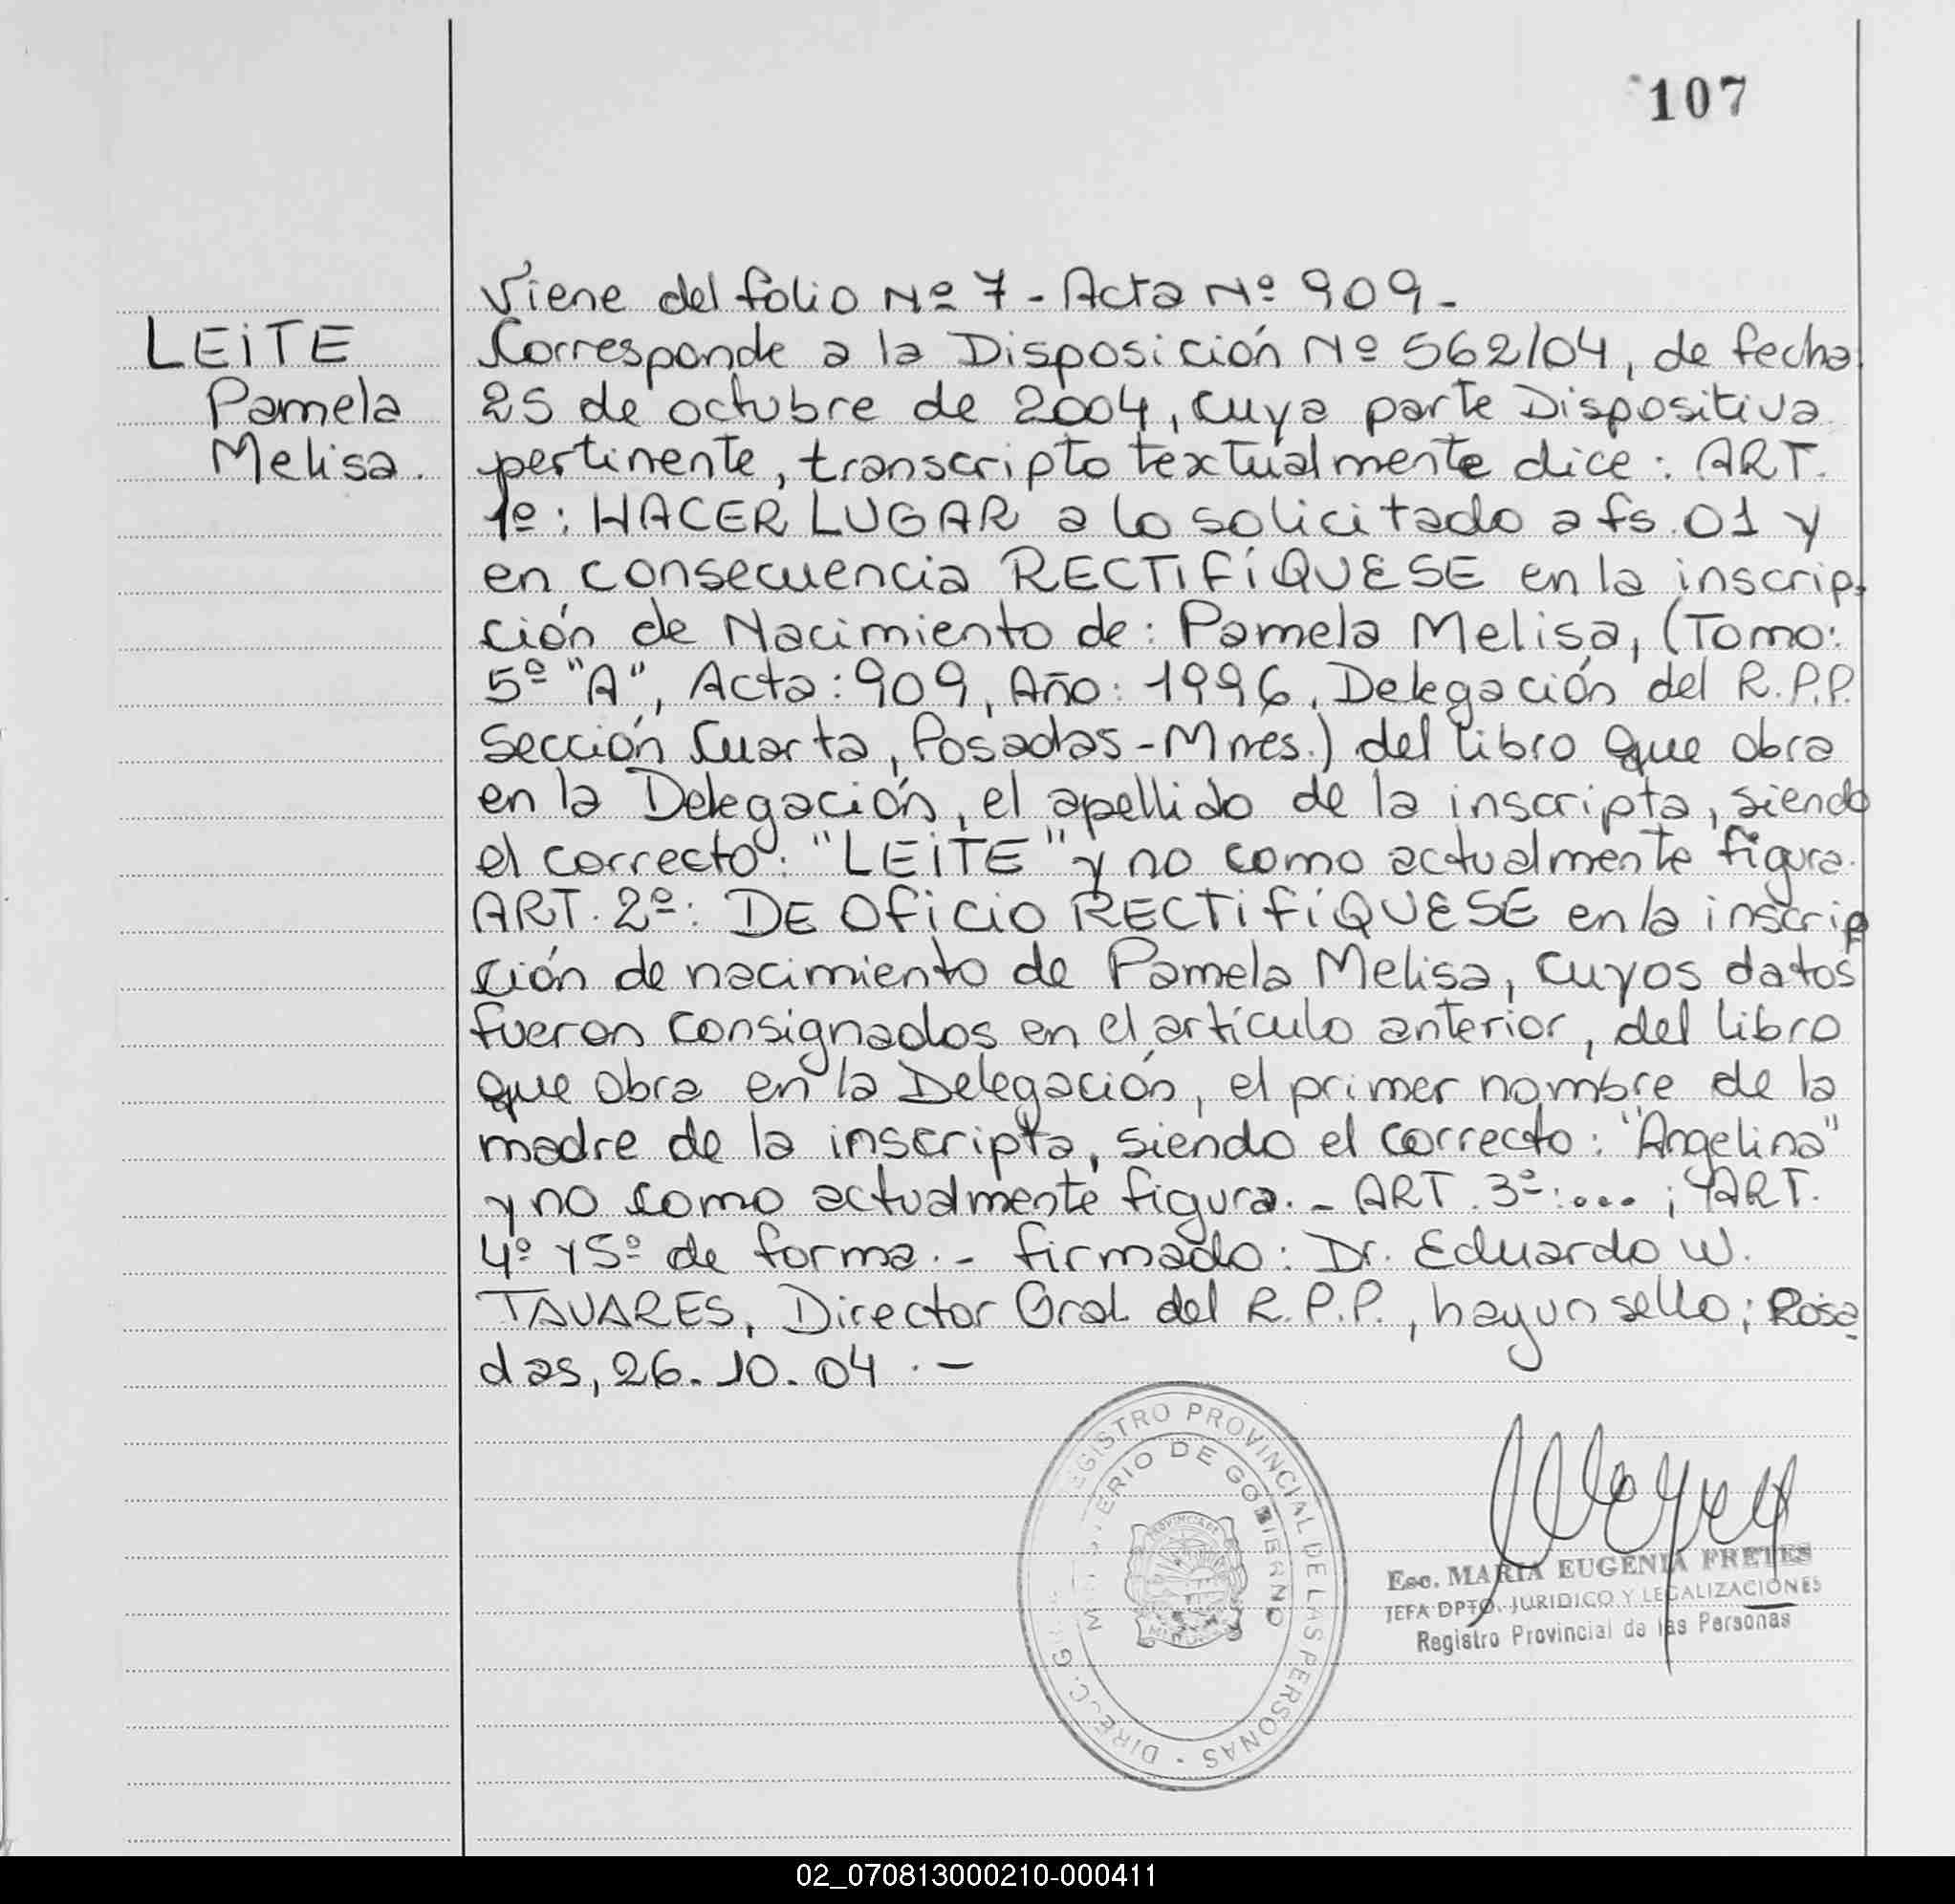 107
Viene del folio Nº 7 - Acta Nº 909 -
LEiTE
Pamela
Melisa.
Corresponde a la Disposición Nº 562/04, de fecha
25 de octubre de 2004, cuya parte Dispositiva
pertinente, transcripto textualmente dice: ART.
1º: HACER LUGAR a lo solicitado a fs. 01 y
en consecuencia RECTiFíQUESE en la inscrip-
ción de Nacimiento de: Pamela Melisa, (Tomo:
5º "A", Acta: 909, Año: 1996, Delegación del R.P.P.
Sección Cuarta, Posadas - Mnes.) del libro que obra
en la Delegación, el apellido de la inscripta, siendo
el correcto: "LEiTE" y no como actualmente figura.
ART. 2º: DE OficiO RECTifíQUESE en la inscrip
ción de nacimiento de Pamela Melisa, cuyos datos
fueron consignados en el artículo anterior, del libro
que obra en la Delegación, el primer nombre de la
madre de la inscripta, siendo el correcto: "Angelina"
y no como actualmente figura. - ART. 3º: ... ; ART.
4º y 5º de forma. - firmado: Dr. Eduardo W.
TAVARES, Director Gral del R.P.P., hay un sello; Posa
das, 26.10.04 . -
REGISTRO PROVINCIAL DE LAS PERSONAS - DIRECC. GRAL.
MINISTERIO DE GOBIERNO
PROVINCIA DE
MISIONES
Esc. MARIA EUGENIA FRETES
JEFA DPTO. JURIDICO Y LEGALIZACIONES
Registro Provincial de las Personas
02_070813000210-000411